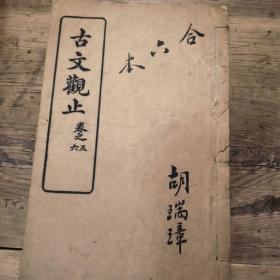 古文觀止
卷之五六
合六本
胡瑞璋